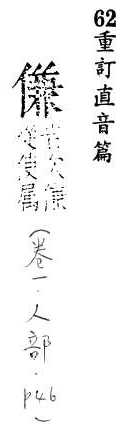 62重訂直音篇
傔
使属
(卷一·人部·p46)